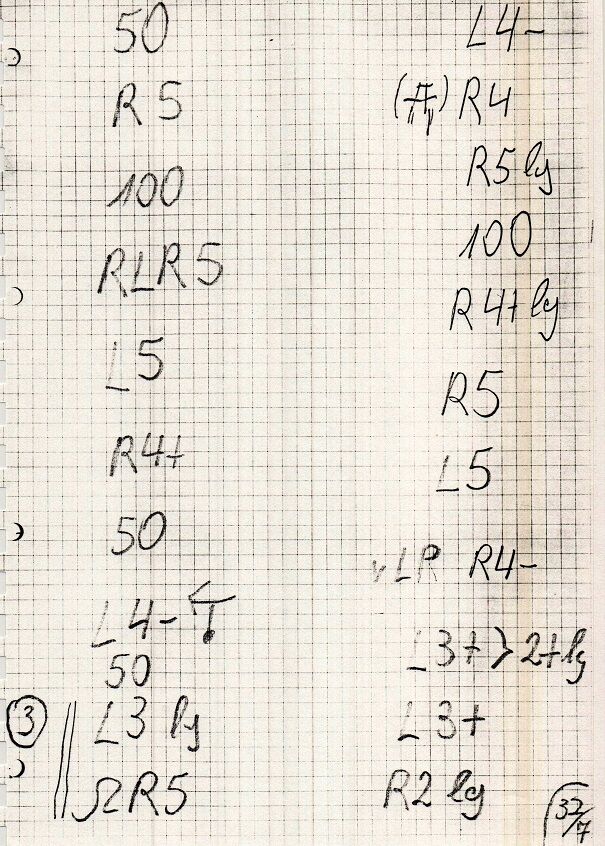 50
R5
100
RLR5
L5
R4+
50
L4-
50
③ L3 lg
ΩR5
L4-
R4
R5 lg
100
R4+ lg
R5
L5
vLR R4-
L3+>2+lg
L3+
R2 lg
32/7